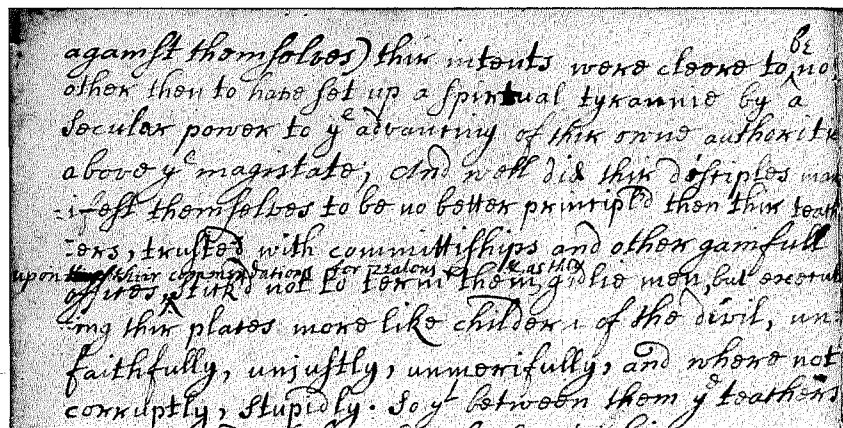 against themselves) thir intents were cleere to be no
other then to have set up a spirtual tyrannie by a
secular power to yᵉ advancing of thir owne authorite
above yᵉ magistate; And well did thir disciples man
-ifest themselves to be no better principl'd then thir teach
-ers, trusted with committiships and other gainfull
upon their commendations for zealous & as they
offices, stick'd not to term them, godlie men, but execut
-ing thir places more like childern of the divil, un-
faithfully, unjustly, unmercifully, and where not
corruptly, stupidly. So yᵗ between them yᵉ teachers